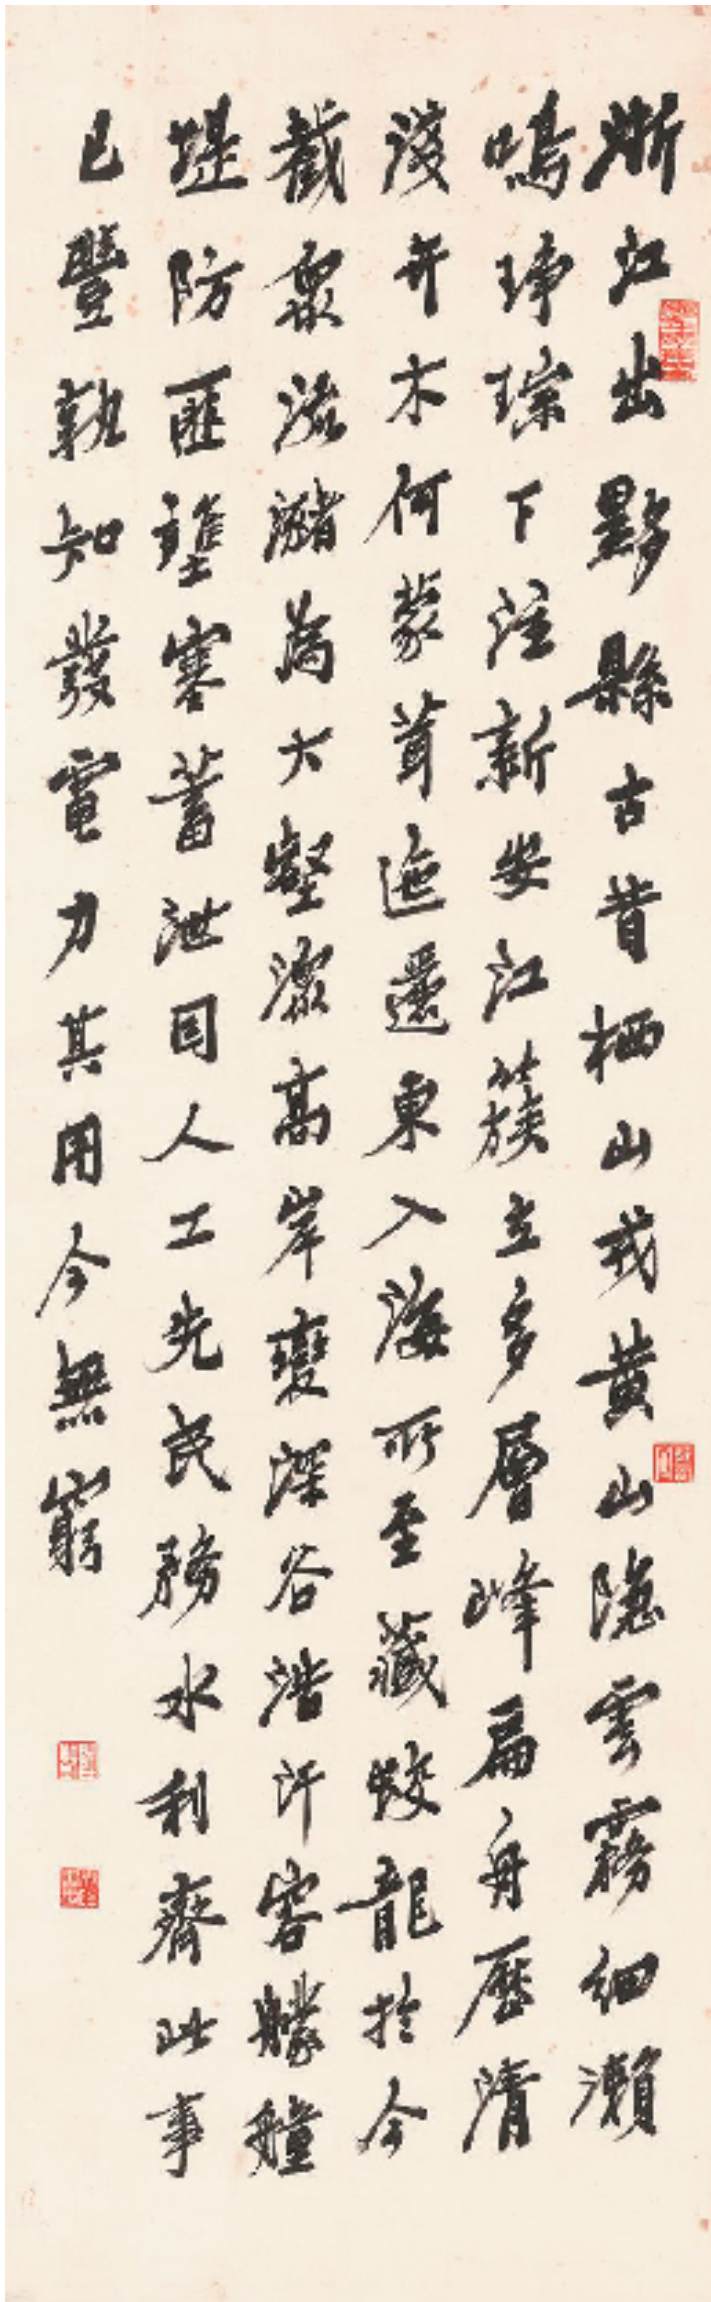 浙江出黟縣古昔栖山戎黃山隐雲霧細瀨
鳴琤琮下注新安江簇立多層峰扁舟歷清
卉木何蒙茸迤邐東入海所至藏蛟龍於今
截衆流瀦為大壑潨高岸變深谷浩汗容艨艟
堤防匪壅塞蓄泄因人工先民務水利齊此事
已豐孰知發電力其用今無窮